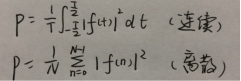 P = \frac{1}{T} \int_{-\frac{T}{2}}^{\frac{T}{2}} |f(t)|^2 dt （连续）
P = \frac{1}{N} \sum_{n=0}^{N-1} |f(n)|^2 （离散）